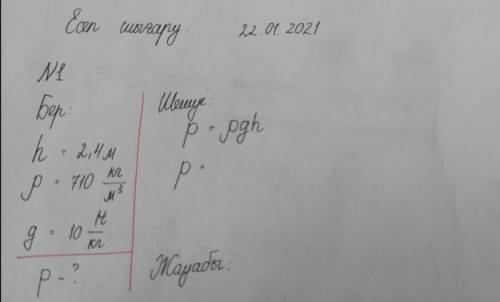 Есеп шығару. 22.01.2021
N1
Бер:
h = 2,4м
ρ = 710 кг/м³
g = 10 Н/кг
p - ?
Шешуі:
p = ρgh
p =
Жауабы: